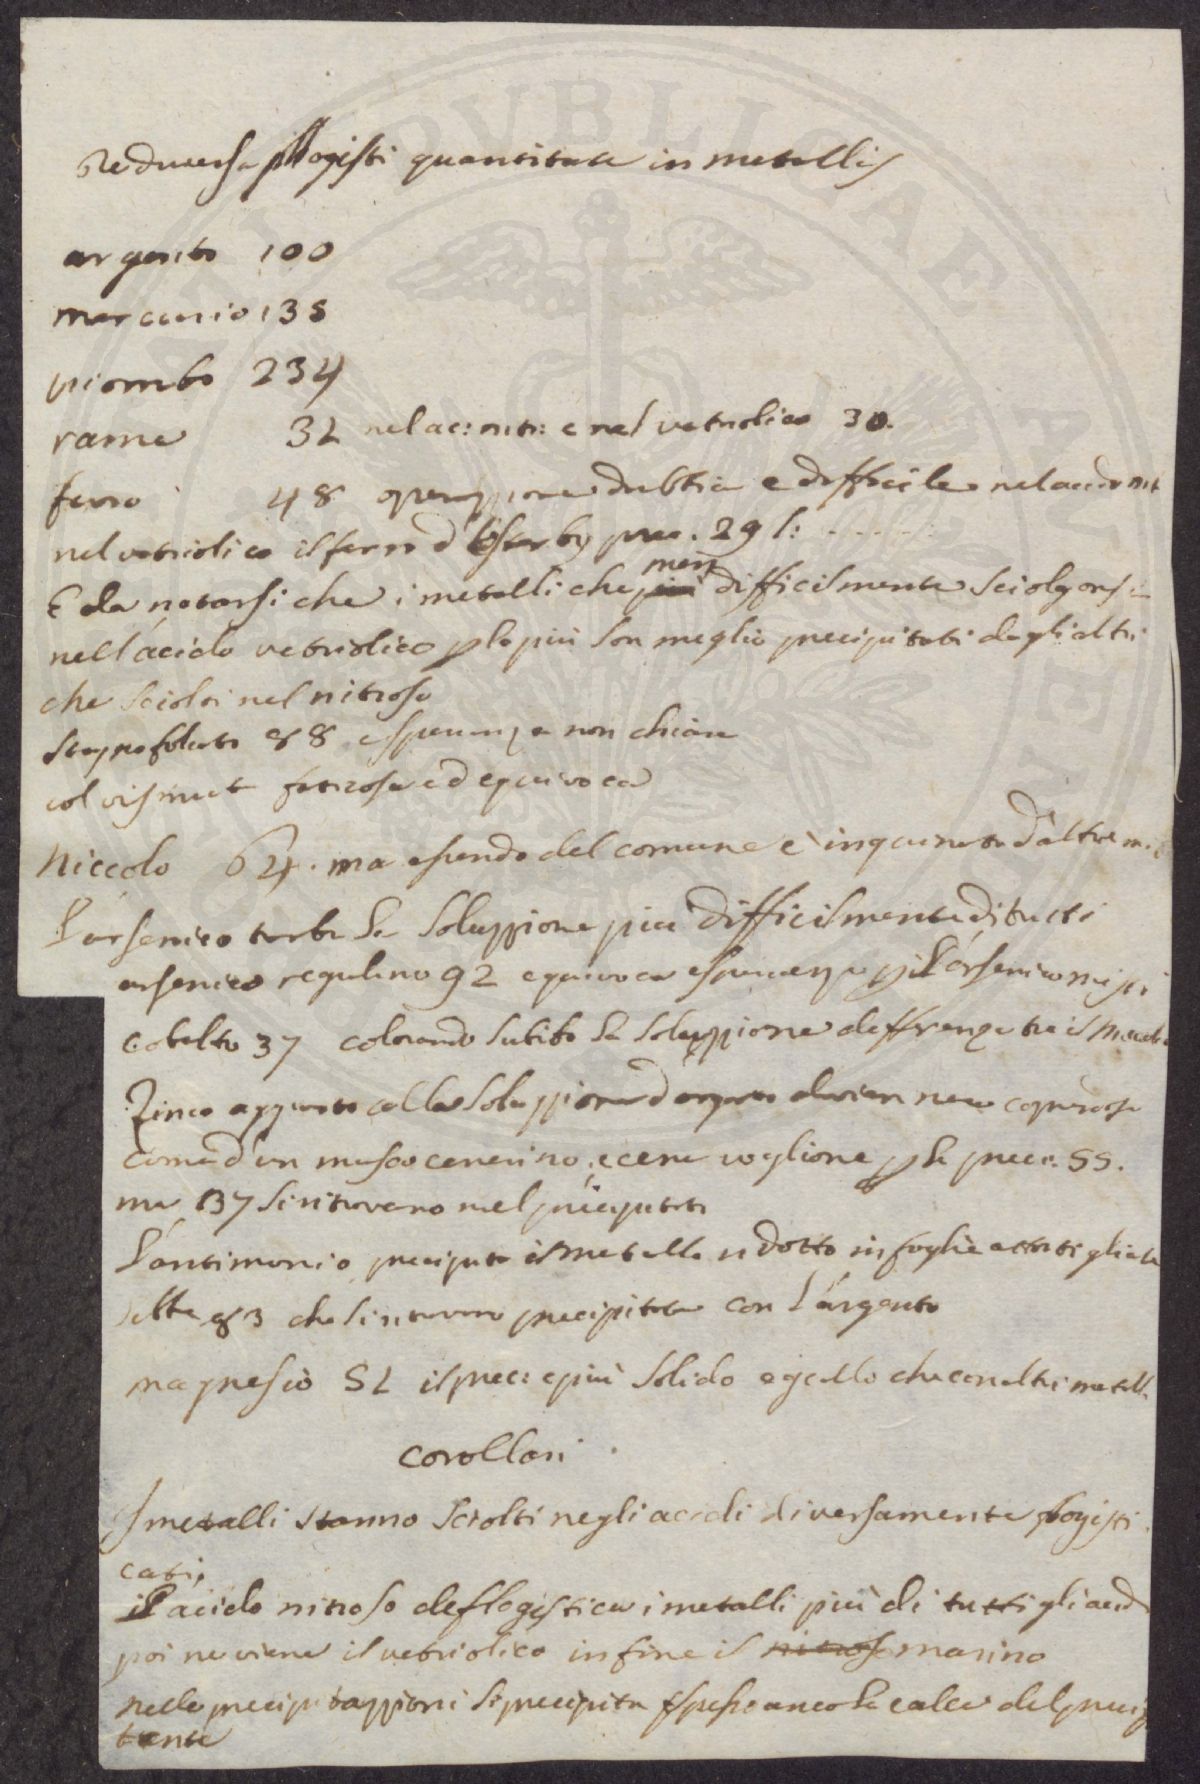 De diversa phlogisti quantitate in metallis
argento 100
mercurio 135
piombo 234
rame 32 nel ac: nitr: e nel vetriolico 30.
ferro 48 operazzione dubbia e difficile nel acido nit
nel vetriolico il ferro d' prec. 29 l:
E da notarsi che i metalli che più men difficilmente sciolgonsi
nell'acido vetriolico p lo più son meglio precipitati dagli altri
che sciolti nel nitroso
stagno foliato 88 esperienza non chiara
col vismut faticosa ed equivoca
Niccolo 64. ma essendo del comune è inquinato d'altri m.
L'arsenico turba la soluzzione più difficilmente di tutti
arsenico regulino 92 equivoca esperienza p il L'arsenico
cobalto 37 colorando subito la soluzzione differenza tra il
Zinco appena colla soluzzione d'argento divien nero coprendosi
come d'un musco cenerino, e ce ne vogliono p la prec: 55.
ma 137 si ritrovano nel precipitato
L'antimonio precipita il metallo ridotto in foglie attortigliate
libbre 83 che si ritrovano precipitate con l'argento
magnesio 52 il prec: è più solido e giallo che con altri metalli
corollari
I metalli stanno sciolti negli acidi diversamente flogisti
cati.
il L'acido nitroso deflogistica i metalli più di tutti gli acidi
poi ne viene il vetriolico infine il nitroso marino
nelle precipitazzioni si precipita spesso anco la calce del precip
tante